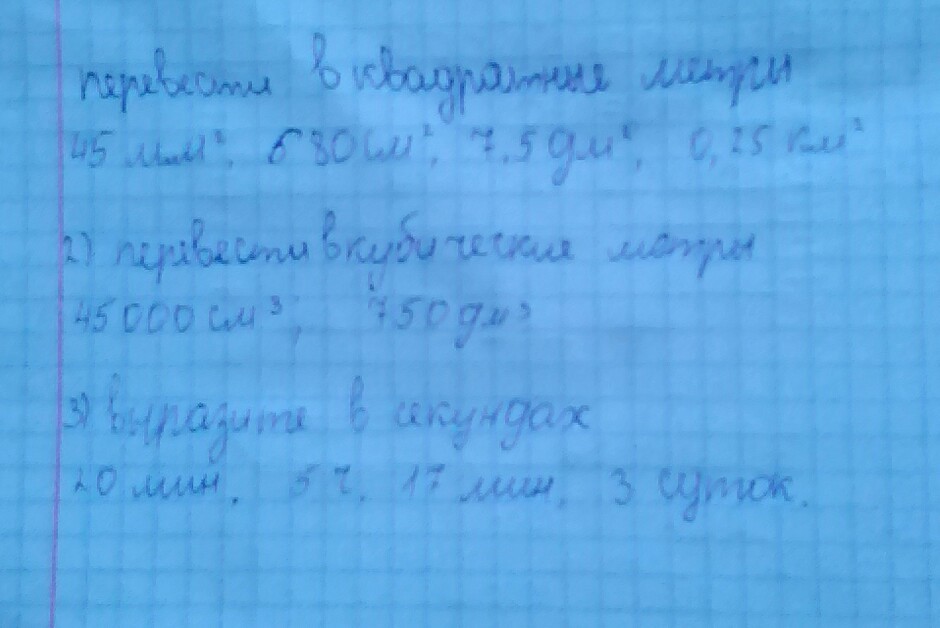 перевести в квадратные метры
45 мм², 680 см², 7,5 дм², 0,25 км²
2) перевести в кубические метры
45000 см³; 750 дм³
3) выразите в секундах
20 мин, 5 ч. 17 мин, 3 суток.